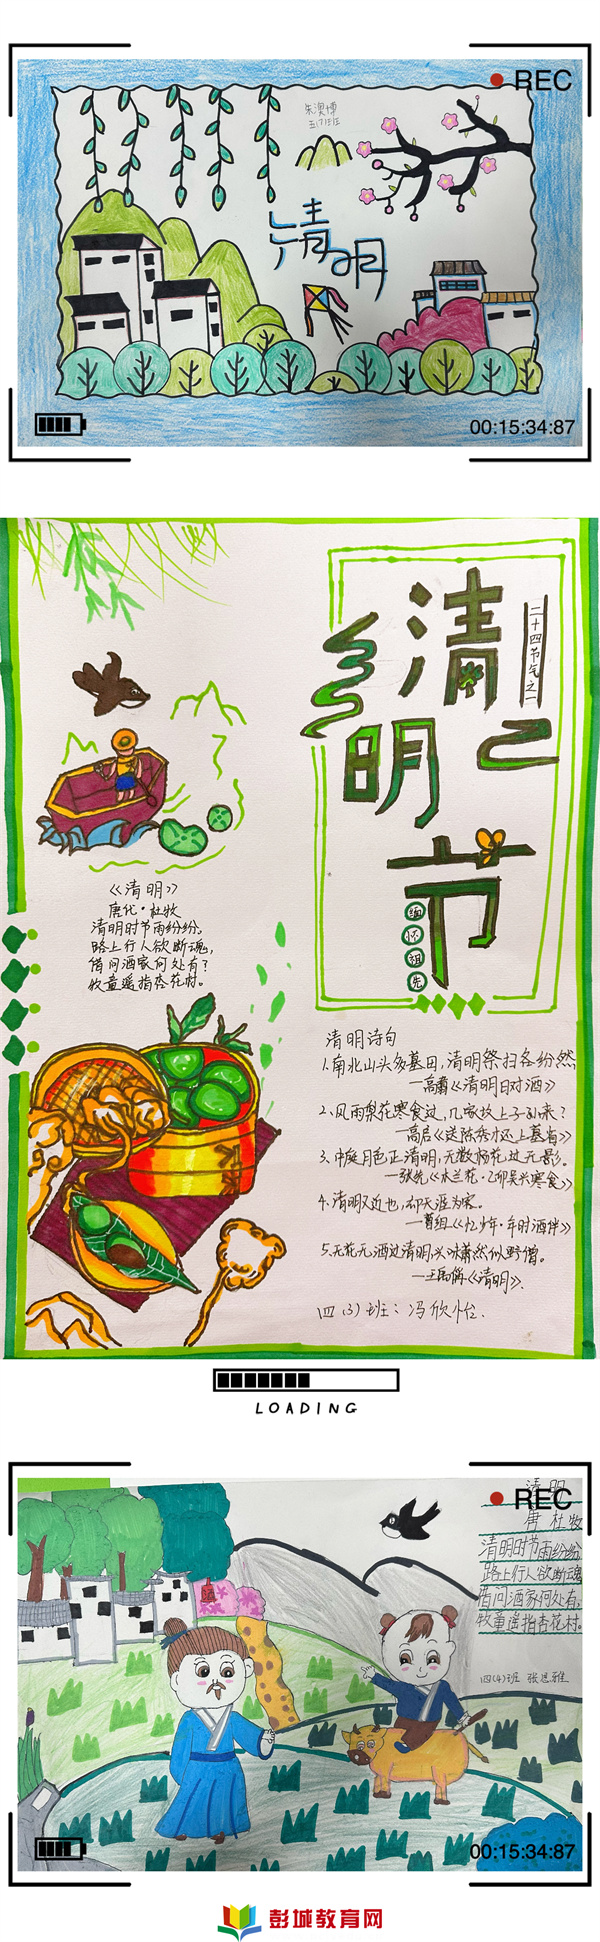 REC
五(7)班
清明
00:15:34:87
二十四节气之一
清
明
节
缅怀祖先
《清明》
唐代·杜牧
清明时节雨纷纷,
路上行人欲断魂,
借问酒家何处有?
牧童遥指杏花村。
清明诗句
1.南北山头多墓田,清明祭扫各纷然
—高翥《清明日对酒》
2、风雨梨花寒食过,几家坟上子孙来?
—高启《送陈秀才还上墓省》
3、中庭月色正清明,无数杨花过无影。
—张先《木兰花·乙卯吴兴寒食》
4、清明又近也,却天涯为客。
—曹组《忆少年·年时酒伴》
5、无花无酒过清明,兴味萧然似野僧。
—王禹偁《清明》.
四(3)班:冯欣怡.
LOADING
REC
清明
唐 杜牧
清明时节雨纷纷
路上行人欲断魂
借问酒家何处有,
牧童遥指杏花村。
四(4)班 张思雅
00:15:34:87
彭城教育网